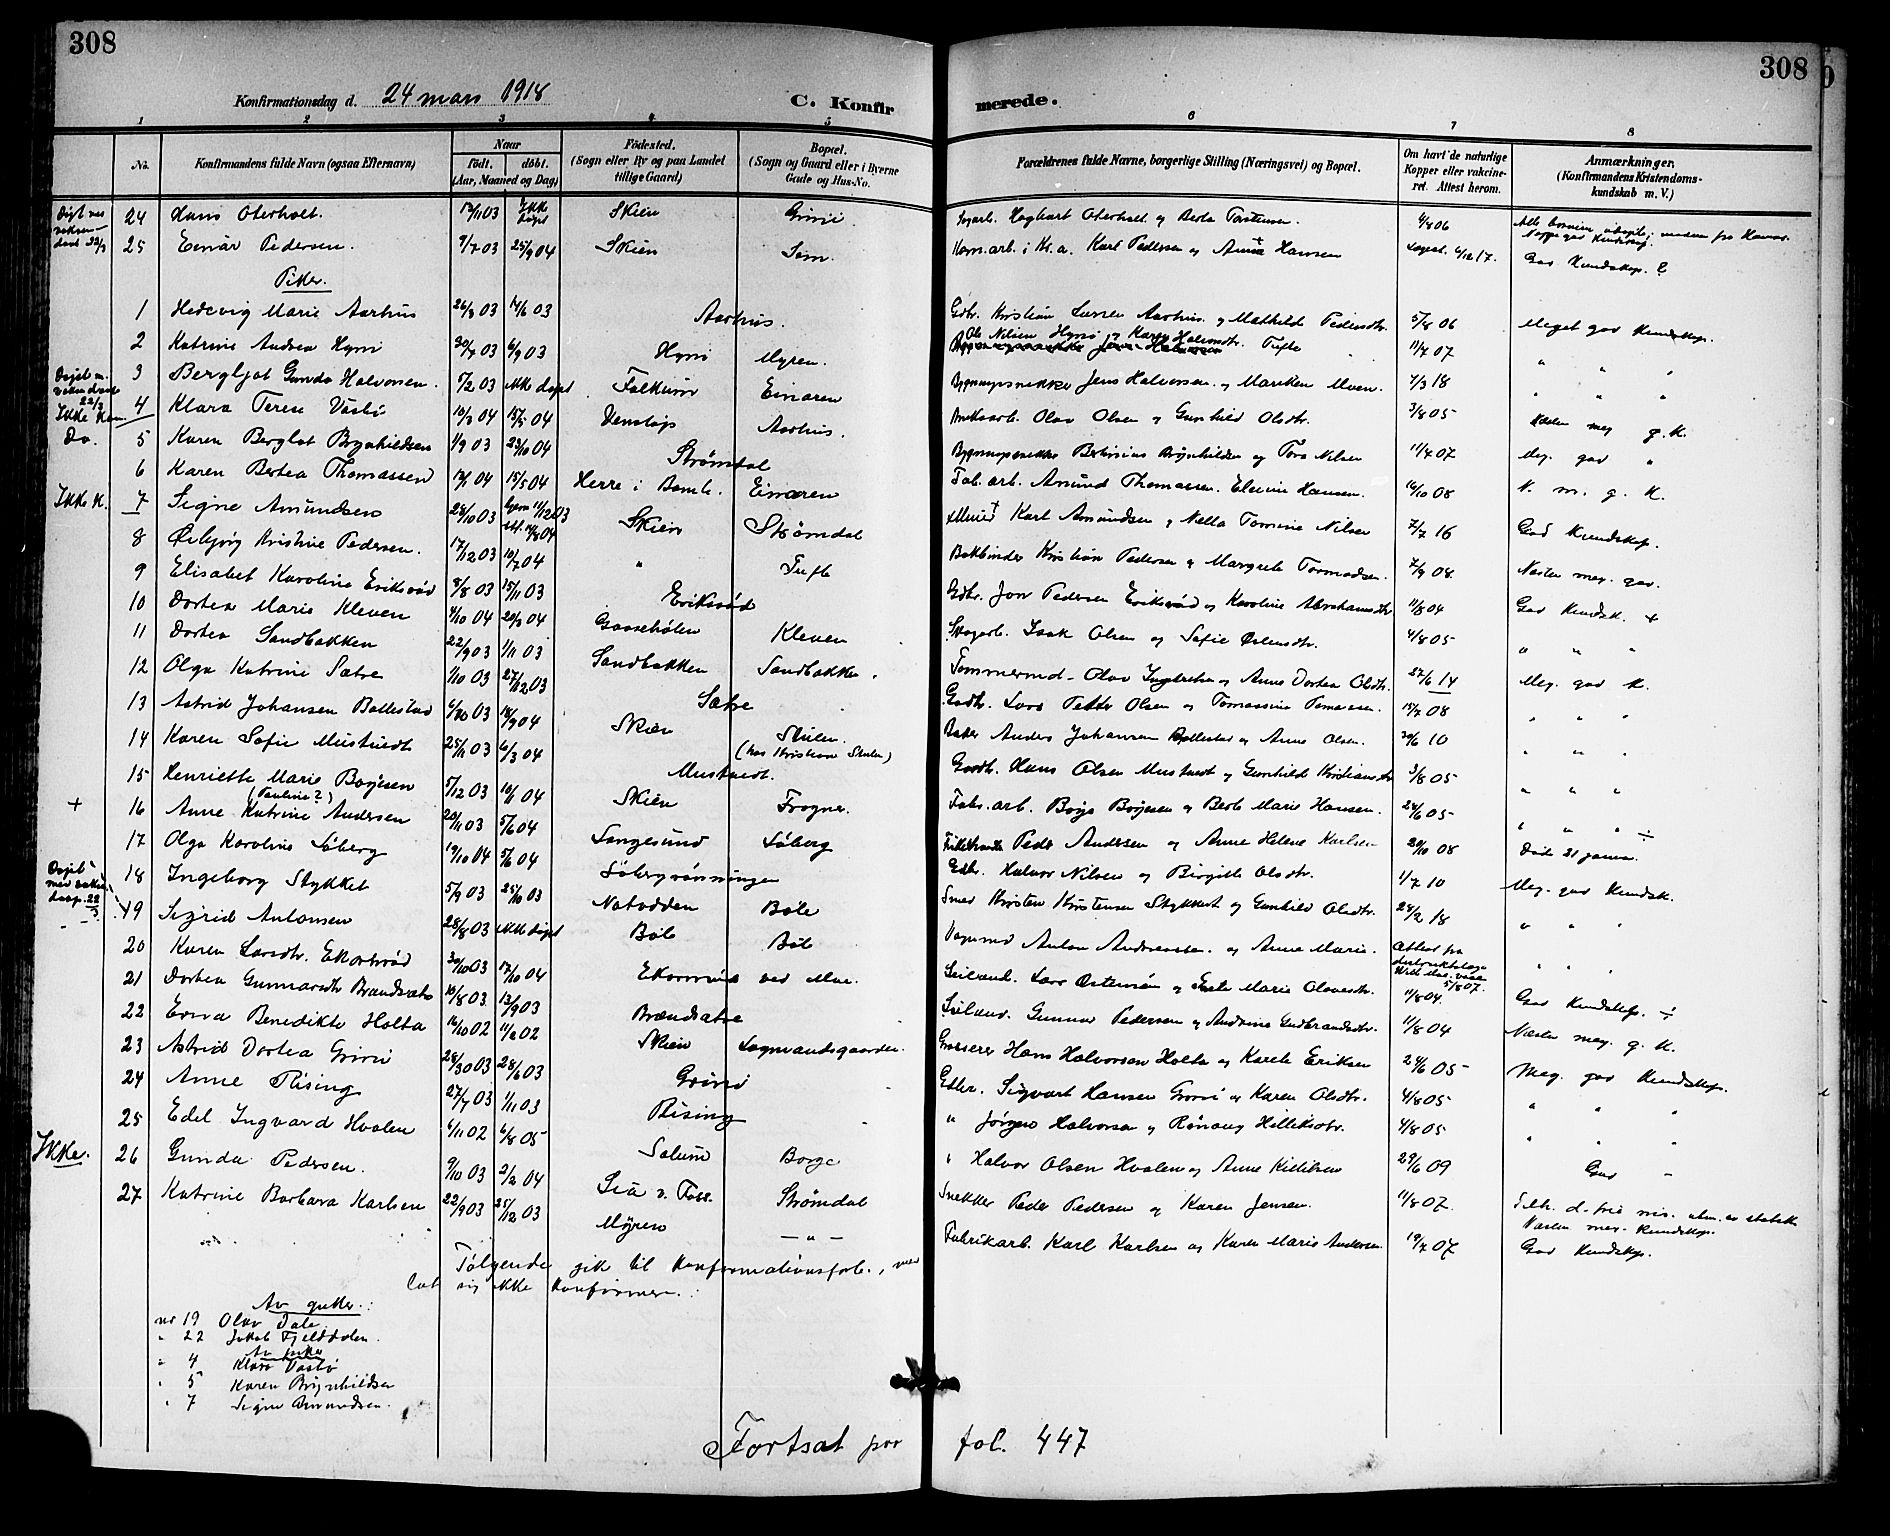 308
308
Konfirmationsdag d. 24 mars 1918
C. Konfirmerede.
1 2 3 4 5 6 7 8
No.
Konfirmandens fulde Navn (ogsaa Efternavn)
Naar
født. døbt.
(Aar, Maaned og Dag)
Fødested.
(Sogn eller By og paa Landet
tillige Gaard)
Bopæl.
(Sogn og Gaard eller i Byerne
Gade og Hus-No.
Forældrenes fulde Navne, borgerlige Stilling (Næringsvei) og Bopæl.
Om havt de naturlige
Kopper eller vakcine-
ret. Attest herom.
Anmærkninger,
(Konfirmandens Kristendoms-
kundskab m. V.)
24 Hans Oterholt. 03 Ikke døpt Skien Grini Hagbart Oterholt og Berta Torstensen. 4/8 06
25 Einar Pedersen. 9/7 03 25/9 04 Skien Karl Pedersen og Anna Hansen 17. God Kundskap.
Piker.
1 Hedevig Marie Aarhus 26/3 03 14/6 03 Aarhus. Gdbr. Kristian Larsen Aarhus. og Mathilde Pedersdtr. 5/8 06 Meget god Kundskap.
2 Katrine Andrea Hyni 30/7 03 6/9 03 Hyni Myren. Ole Nilsen Hyni og Karen Halvorsdtr. Tufte 11/7 07 " " "
3 Bergljot Gunda Halvorsen. 5/2 03 ikke døpt Falkum Einaren Bygningssnekker Jens Halvorsen. og Mariken Moen. 4/3 18 " " "
4 Klara Terese Vasbø 10/3 04 15/5 04 Venstøp Aarhus. Olav Olsen og Gunhild Olsdtr. 3/8 05 Næsten meg. g. K.
Ikke Kon.
Do.
5 Karen Berglot Brynhildsen 1/9 03 23/10 04 Strømdal Bygningssnekker Bertinius Brynhildsen og Tora Nilsen 11/4 07 Meg. god "
6 Karen Bertea Thomassen 12/1 04 15/5 04 Herre i Bamb. Einaren Fab. arb. Amund Thomassen. Elevine Hansen. 16/10 08 N. m. g. K.
Ikke K. 7 Signe Amundsen 28/10 03 Skien Strømdal Karl Amundsen og Nella Tomine Nilsen 7/7 16 God Kundskap.
8 Østbjørg Kristine Pedersen. 17/12 03 10/7 04 " Tufte Bokbinder Kristian Pedersen og Margrete Tormodsen. 7/9 08. Næsten meg. god.
9 Elisabet Karoline Eriksrød 8/8 03 15/11 03 Eriksrød Gdbr. Jon Pedersen Eriksrød og Karoline Abrahamsdtr 11/8 04 God Kundsk. +
10 Dortea Marie Kleven 4/10 04 20/3 04 Gaasehølen Kleven Skogarb. Isak Olsen og Sofie Østensdtr. 4/8 05 " " "
11 Dortea Sandbakken 22/9 03 1/11 03 Sandbakken Sandbakken. Tømmermd. Olav Ingebretsen og Anne Dortea Olsdtr. 27/6 14 Meg. god K.
12 Olga Katrine Sætre 1/10 03 27/12 03 Sætre Gaardbr. Lars Petter Olsen og Tomassine Tomassen. 15/7 08 " " "
13 Astrid Johansen Ballestad 4/10 03 18/9 04 Skien Skilen. (hos Kristian Skilen) Anders Johansen Ballestad og Anne Olsen. 30/6 10 " " "
14 Karen Sofie Mustvedt 25/11 03 6/3 04 Mustvedt. Gaardb. Hans Olsen Mustvedt og Gunhild Kristiansdtr 3/8 05 " " "
15 Henriette Marie Børjesen 5/12 03 10/1 04 Skien Frogner. Fabr. arb. Børje Børjesen og Berte Marie Hansen. 24/6 05 " " " ÷
(Pauline?)
+ 16 Anne Katrine Andersen 20/11 03 5/6 04 Langesund Løberg Peder Andersen og Anne Helene Karlsen 20/10 08 Død 21 januar.
17 Olga Karoline Løberg 19/10 04 5/6 04 Løbergrønningen Gdbr. Halvor Nilsen og Birgitte Olsdtr. 1/7 10 Meg. god Kundsk.
18 Ingeborg Stykket 5/9 03 25/10 03 Notodden Bøle Smed Kristen Kristensen Stykket og Gunhild Olsdtr. 28/2 18 " " "
19 Sigrid Antonsen 28/8 03 ikke døpt Bøle Bøle Anton Andreassen. og Anne Marie. Attest fra distriktslæge 5/8 07. " " "
20 Karen Larsdtr. Ekornrød 30/10 03 17/10 04 Ekornrød ved Moe. Selveier. Lars Østensen og Marie Olavsdtr. 11/8 04. God Kundskap. ÷
21 Dortea Gunnarsdtr Brændsæte 10/8 03. 13/9 03 Brændsætre Selveier. Gunnar Pedersen og Andrine Gudbrandsdtr. 11/8 04 Næsten meg. g. K.
22 Erna Benedikte Holta 16/10 02 02 Skien Lagmandsgaarden. Grosserer Hans Halvorsen Holta og Karete Eriksen 24/6 05 Meg. god Kundskap.
23 Astrid Dortea Grini 03 28/6 03 Grini Gdbr. Sigvart Hansen Grini og Karen Olsdtr. 4/8 05 " " "
24 Anne Rising 27/7 03 1/11 03 Rising " Jørgen Halvorsen og Rønaug Hilleksdtr. 4/8 05 " " "
25 Edel Ingvard Hvalen 6/11 02 6/8 05 Solum Borge " Halvor Olsen Hvalen og Anne Kittilsen 29/6 09 God "
Ikke. 26 Gunda Pedersen. 9/10 03 2/2 04 Lia v. Foss. Strømdal Snekker Peder Pedersen og Karen Jensen. 11/8 07. Næsten meg. Kundskap.
27 Katrine Barbara Karlsen 22/9 03 25/12 03 Myren — " — Fabrikarb. Karl Karlsen og Karen Marie Andersen. 19/7 07 God Kundskap.
Følgende gik til Konfirmationsforb., men
lot sig ikke konfirmere.:
Av gutter.:
nr 19 Olav Dale
" 22 Jakob Fjelddalen.
Av piker
" 4 Klara Vasbø
" 5 Karen Brynhildsen
" 7 Signe Amundsen.
Fortsat paa fol. 447